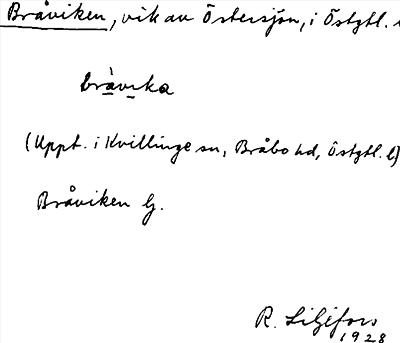 Bråviken, vik av Östersjön, i Östgtl.
bràvıka
(Uppt. i Kvillinge sn, Bråbo hd, Östgtl. l)
Bråviken G.
R. Liljefors
1928